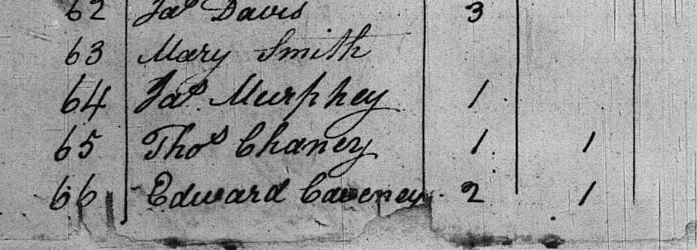 62 Jas Davis 3
63 Mary Smith
64 Jas. Murphey 1
65 Thos Chaney 1 1
66 Edward Caveney 2 1